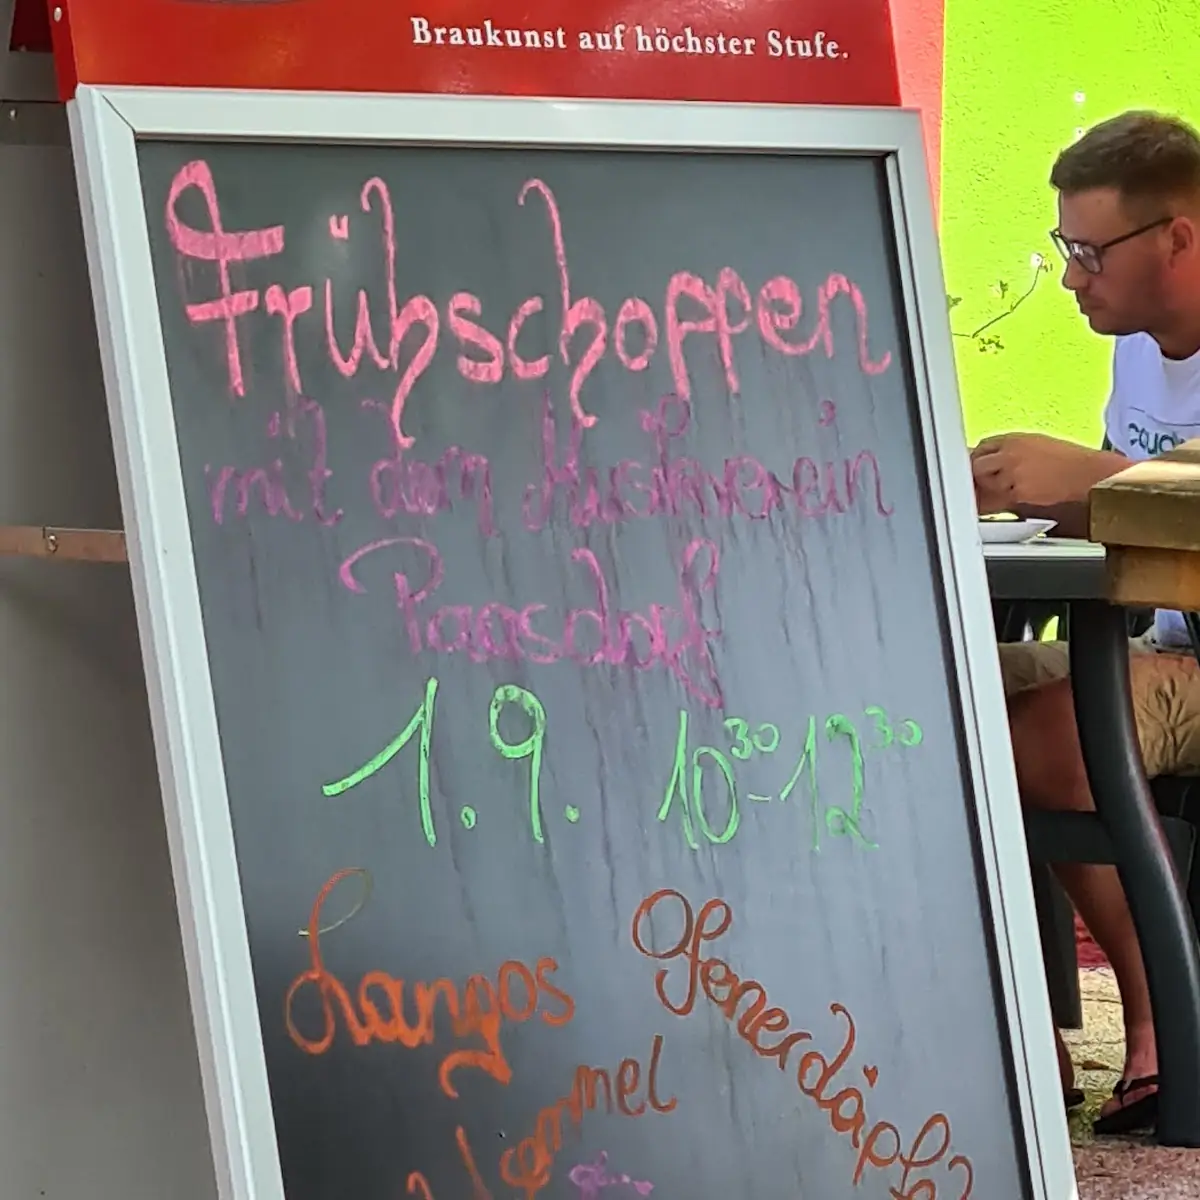 Braukunst auf höchster Stufe.
Frühschoppen
mit dem Musikverein
Paasdorf
1.9. 10³⁰-12³⁰
Langos
Ofenerdäpfel